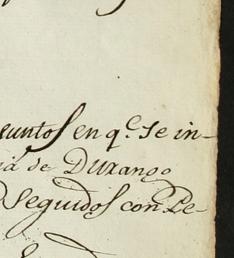 suntos en q.e se in-
ia de Durango
seguidos con Pe-